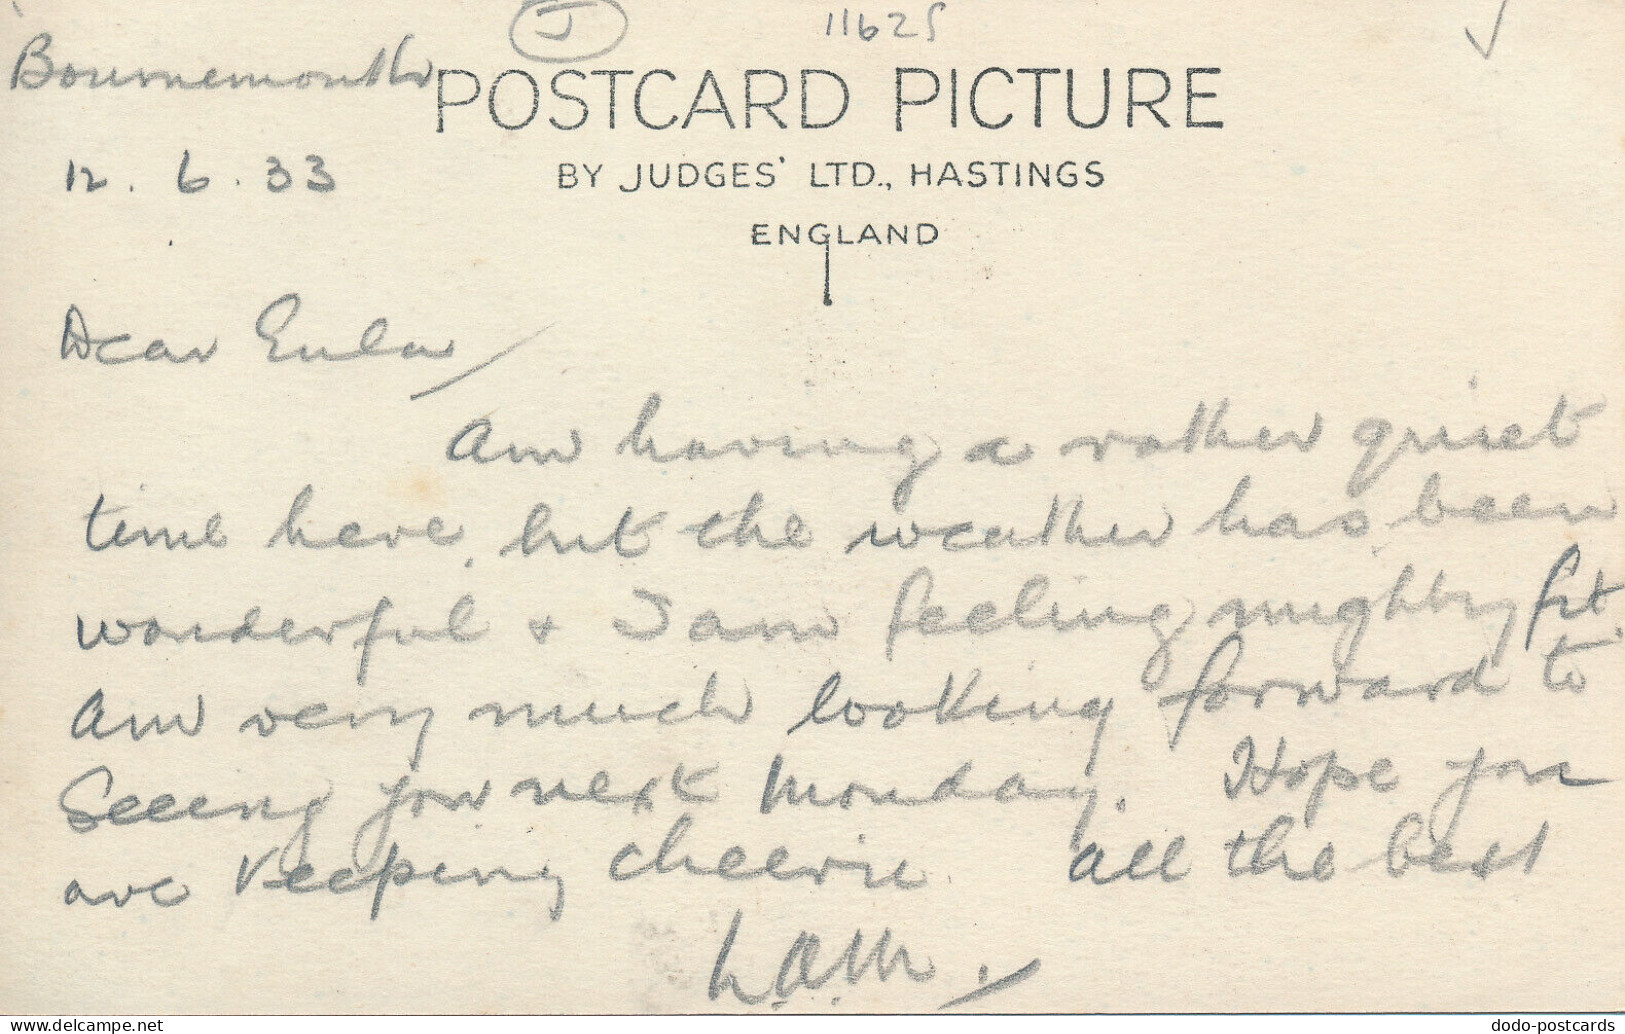 J 11625
Bournemouth
POSTCARD PICTURE
12.6.33
BY JUDGES' LTD., HASTINGS
ENGLAND
Dear Eula
Am having a rather quiet
time here, but the weather has been
wonderful + I am feeling mighty fit.
Am very much looking forward to
Seeing you next Monday. Hope you
are keeping cheerie. All the best
Delcampe.net
dodo-postcards